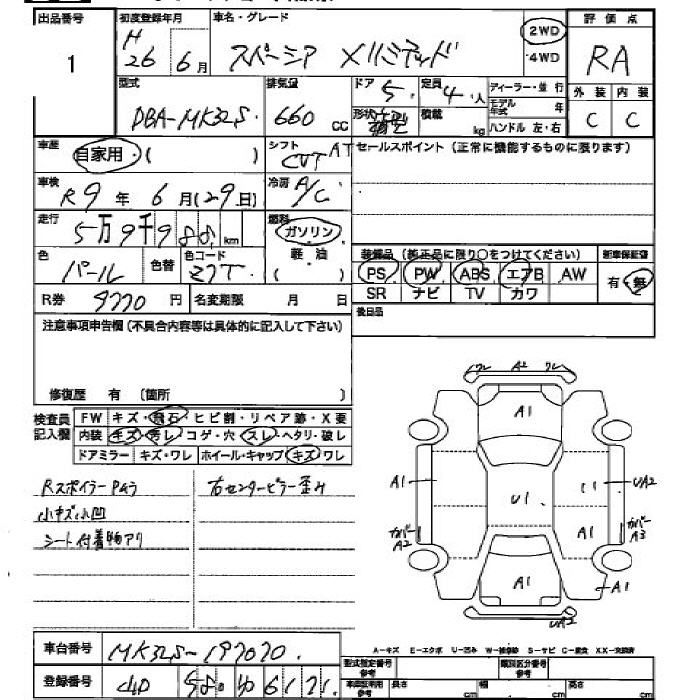 出品番号 初度登録年月 車名・グレード 評価点
1 H 26 6月 スペーシア Xリミテッド 2WD ・4WD RA
型式 排気量 ドア 定員 ディーラー・並行 外装 内装
DBA-MK32S 660 CC 5 4人 モデル年式 年 C C
形状 積載 kg ハンドル 左・右
車歴 自家用・( ) シフト CVT AT セールスポイント(正常に機能するものに限ります)
車検 R9年 6月(29日) 冷房 A/C
走行 5万9千9 88 km 燃料 ガソリン・軽・油 ( )
色 パール 色替 色コード Z7T 装備品(純正品に限り○をつけてください) 新車保証書
PS PW ABS エアB AW 有・無
R券 9770円 名変期限 月 日 SR ナビ TV カワ
注意事項申告欄(不具合内容等は具体的に記入して下さい) 後日品
修復歴 有 (箇所 )
検査員記入欄 FW キズ・飛石・ヒビ割・リペア跡・X要
内装 キズ・汚レ・コゲ・穴・スレ・ヘタリ・破レ
ドアミラー キズ・ワレ ホイール・キャップ キズ ワレ
Rスポイラー 右センターピラー歪み
小キズ小凹
シート付着物アリ
ワレ A2 ワレ
A1
A1 U1 UA2
カバー A2 A1 カバー A3
A1 A1
UA2
A-キズ E-エクボ U-凹み W-補修跡 S-サビ C-腐食 XX-交換済
車台番号 MK32S-197070 型式指定番号 参考 類別区分番号 参考
登録番号 580 6171 長さ cm 幅 cm 高さ cm